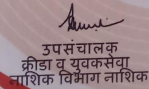 उपसंचालक
क्रीडा व युवकसेवा
नाशिक विभाग नाशिक